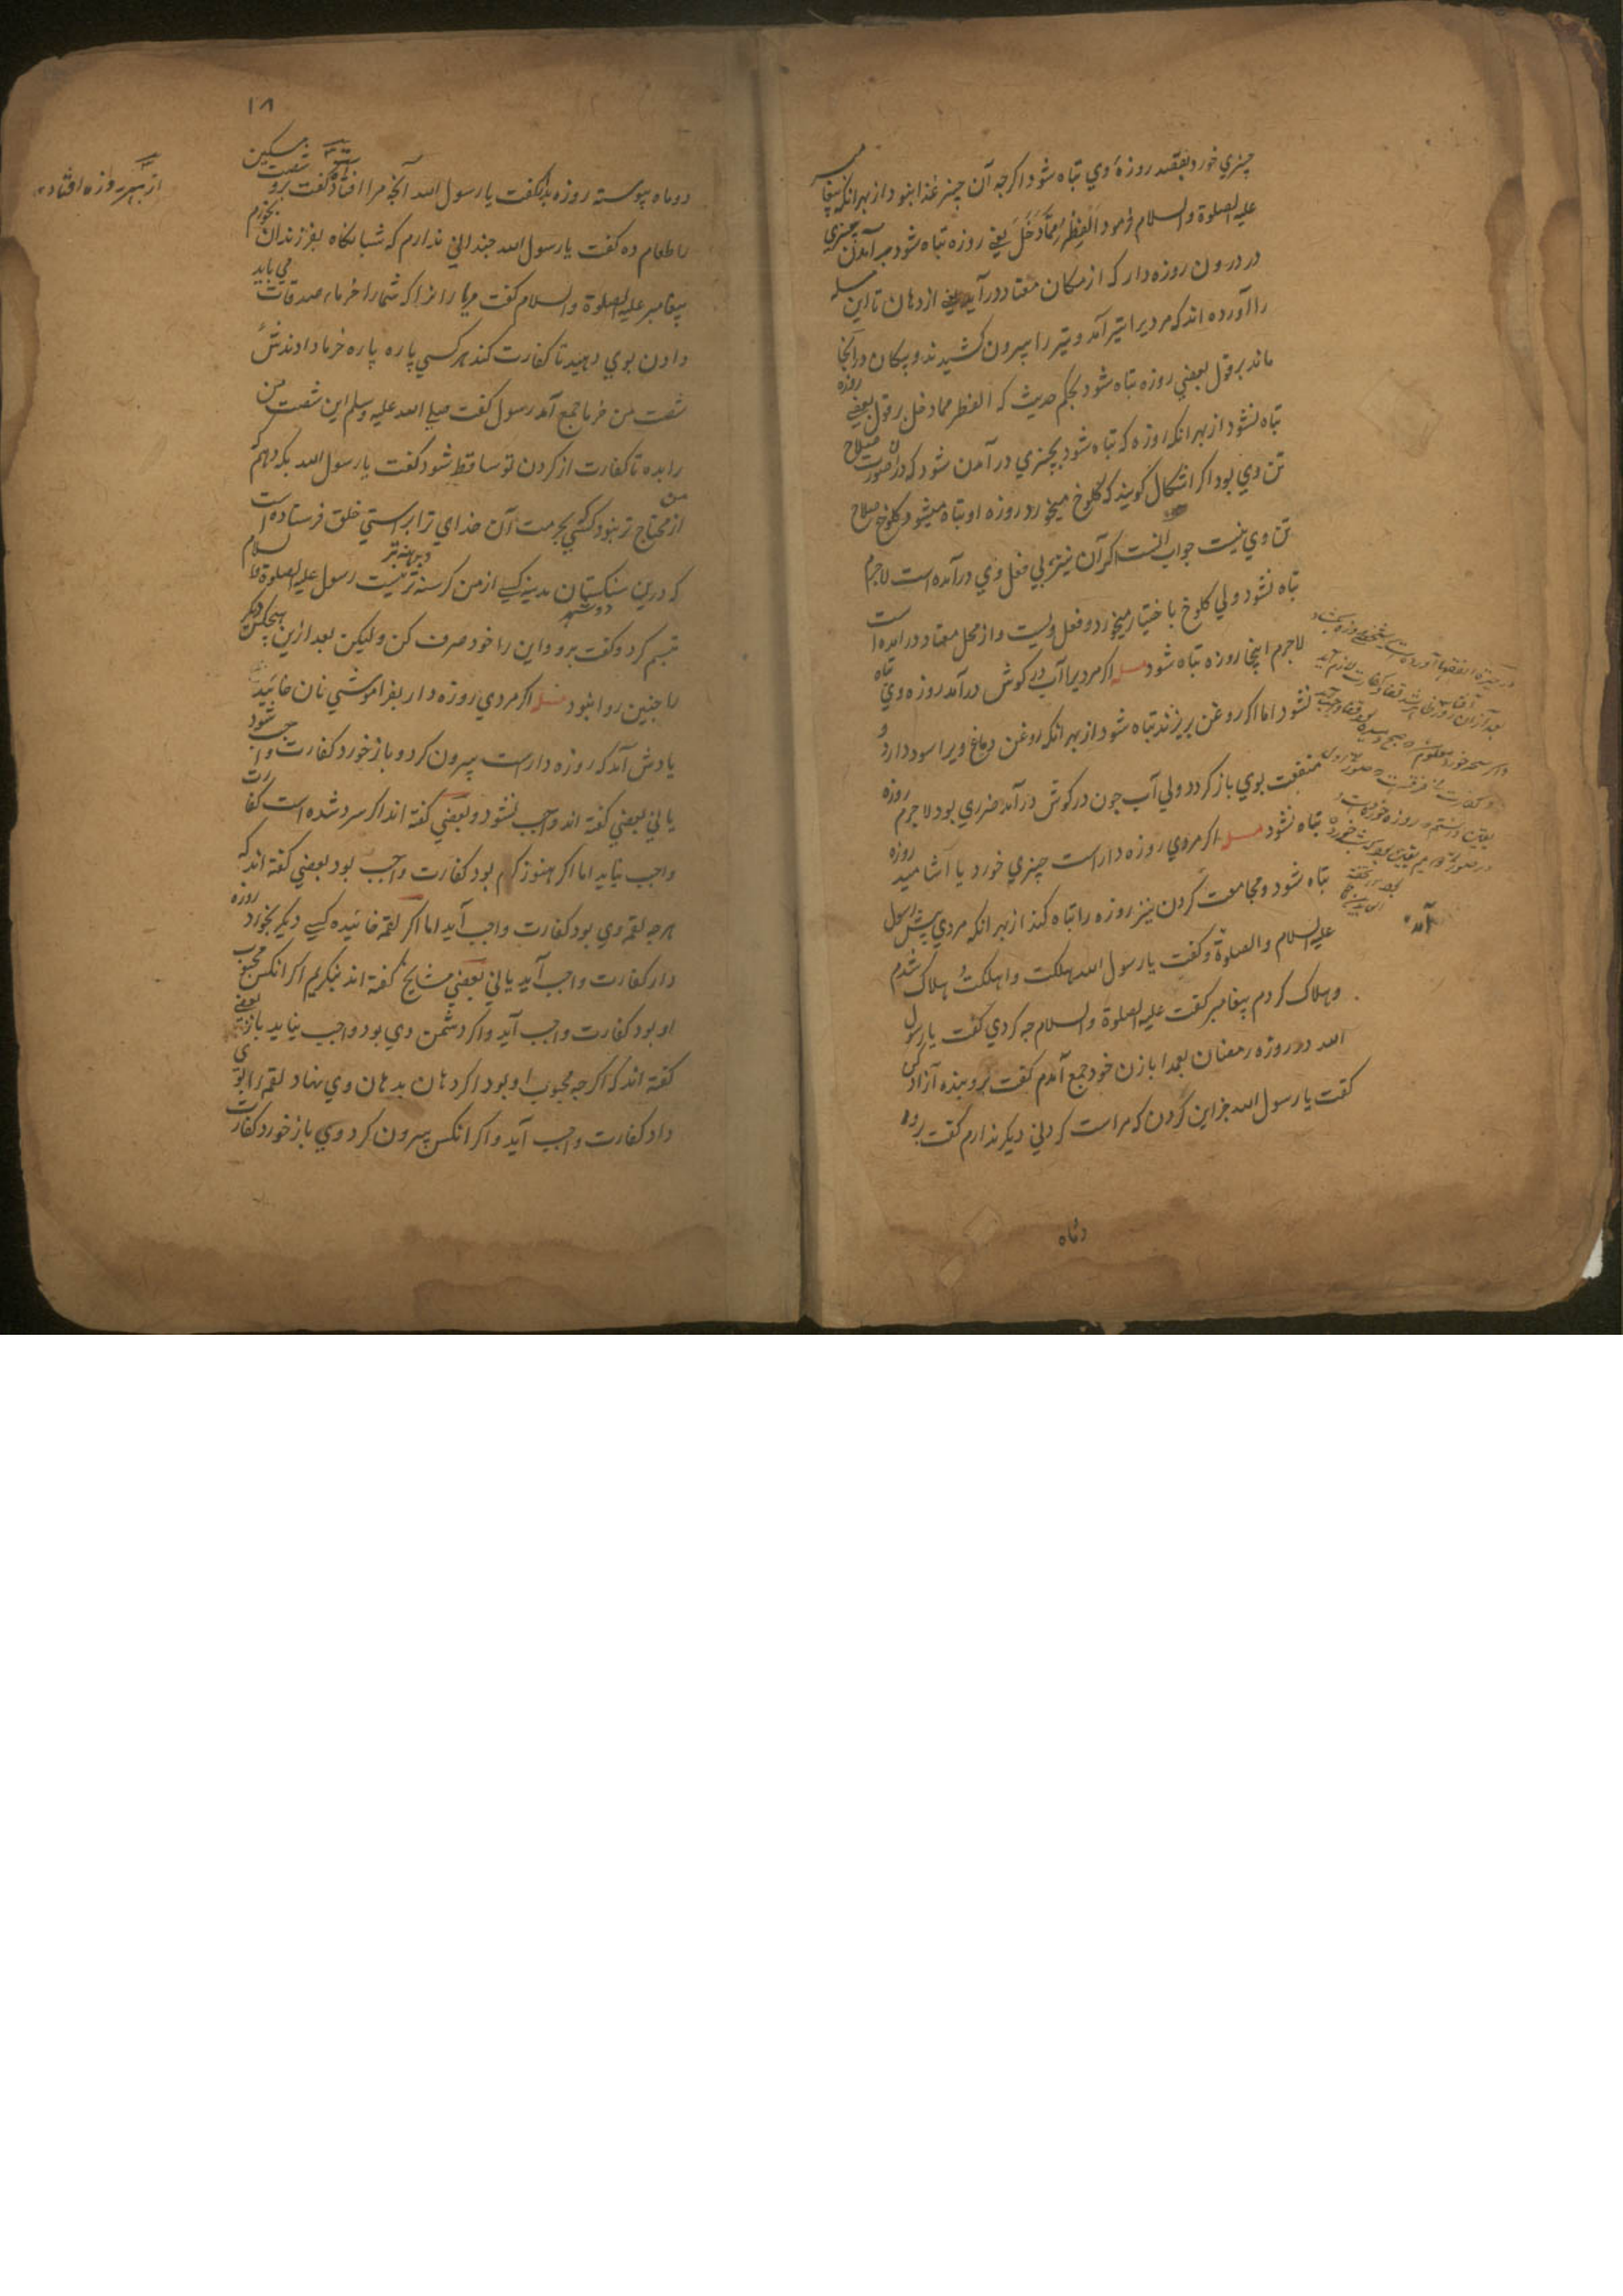 چيزي خورد بقصد روزهٔ وي تباه شود اكرچه آن چيز غذا نبود از بهر انكه پيغامبر
عليه الصلوة والسلام فرمود الفطر مما دخل يعني روزه تباه شود بدر آمدن چيزي
در درون روزه دار كه از مكان معتاد درآيد يعني از دهان تا اين مسله
را آورده اند كه مرديرا تير آمد و تير را بيرون كشيدند و پيكان در آنجا
ماند بر قول بعضي روزه تباه شود بحكم حديث كه الفطر مما دخل بر قول بعضي روزه
تباه نشود از بهر انكه روزه كه تباه شود بچيزي در آمدن شود كه در ان صورت صلاح
تن وي بود اكر اشكال كويند كه كلوخ ميخورد روزه او تباه ميشود كلوخ صلاح
تن وي نيست جواب آنست اكر آن نيز بي فعل وي درآمده است لاجرم
تباه نشود ولي كلوخ باختيار ميخورد و فعل ويست و از محل معتاد در آمده است
لاجرم اينجا روزه تباه شود مسله اكر مرديرا آب در كوش درآمد روزه وي تباه
نشود اما اكر روغن بريزند تباه شود از بهر انكه روغن دماغ ويرا سود دارد و
منفعت بوي باز كردد ولي آب چون در كوش درآمد ضرري بود لاجرم روزه
تباه نشود مسله اكر مردي روزه دار است چيزي خورد يا آشاميد روزه
تباه شود و مجامعت كردن نيز روزه را تباه كند از بهر انكه مردي پيش رسول
عليه السلام والصلوة و كفت يا رسول الله هلكت واهلكت هلاك شدم
و هلاك كردم پيغامبر كفت عليه الصلوة والسلام چه كردي كفت يا رسول
الله در روزه رمضان بعمدا با زن خود جمع آمدم كفت برو بنده آزاد كن
كفت يا رسول الله جز اين كردن كه مراست كردني ديكر ندارم كفت برو
دوماه
آمد
١٨
دو ماه پيوسته روزه بدار كفت يا رسول الله آنچه مرا افتاد كفت برو شصت مسكين
را طعام ده كفت يا رسول الله چنداني ندارم كه شبانكاه بفرزندان بخورم
پيغامبر عليه الصلوة والسلام كفت مر يارانرا كه شما را خرماء صدقات مي بايد
دادن بوي دهيد تا كفارت كند هر كسي پاره پاره خرما دادندش
شصت من خرما جمع آمد رسول كفت صلي الله عليه وسلم اين شصت من
را بده تا كفارت از كردن تو ساقط شود كفت يا رسول الله بكه دهم كه
از من محتاج تر نبود كسي بحرمت آن خداي ترا براستي خلق فرستاده است
كه درين سنكستان مدينه كسي از من كرسنه تر و برهنه تر نيست رسول عليه الصلوة والسلام
تبسم كرد و كفت برو و اين را خود صرف كن وليكن بعد ازين هيچكس ديكر
را چنين روا نبود مسله اكر مردي روزه دار بفراموشي نان خائيد
يادش آمد كه روزه دارست بيرون كرد و باز خورد كفارت واجب شود
يا ني بعضي كفته اند واجب نشود و بعضي كفته اند اكر سرد شده است كفارت
واجب نيايد اما اكر هنوز كرم بود كفارت واجب بود بعضي كفته اند كه
هرچه لقمه وي بود كفارت واجب آيد اما اكر لقمه خائيده كسي ديكر بخورد روزه
دار كفارت واجب آيد يا ني بعضي مشايخ كفته اند بنكريم اكر انكس محبوب
او بود كفارت واجب آيد و اكر دشمن وي بود واجب نيايد باز بعضي
كفته اند كه اكرچه محبوب او بود اكر دهان بدهان وي نهاد لقمه را بوي
داد كفارت واجب آيد و اكر انكس بيرون كرد و وي باز خورد كفارت
از بهر روزه افتاد